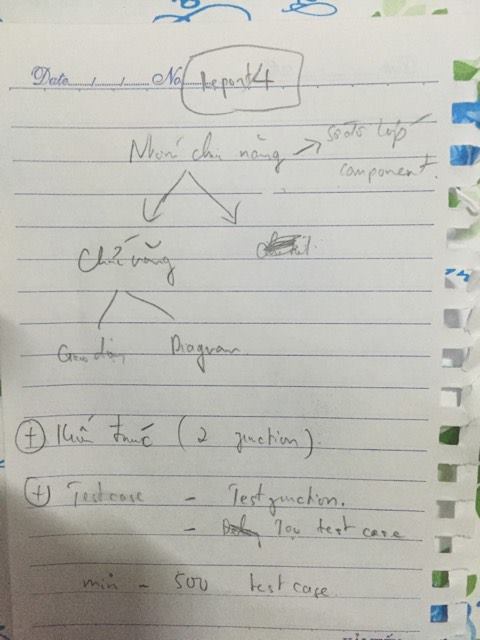 Date / / No Report 4
Nhóm chức năng → sơ đồ lớp
component.
Chức năng
Giao diện Diagram
(+) Kiến thức (2 function).
(+) Testcase - Test function.
- test case
min - 500 test case.